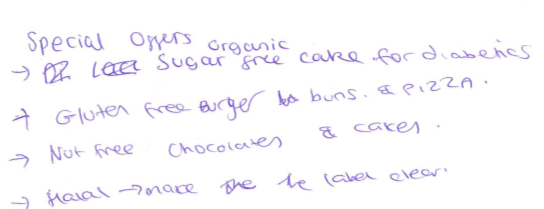 Special Offers
→ organic Sugar free cake for diabetics
→ Gluten free Burger buns. & PIZZA.
→ Nut free chocolates & cakes.
→ Halal → make the label clear.